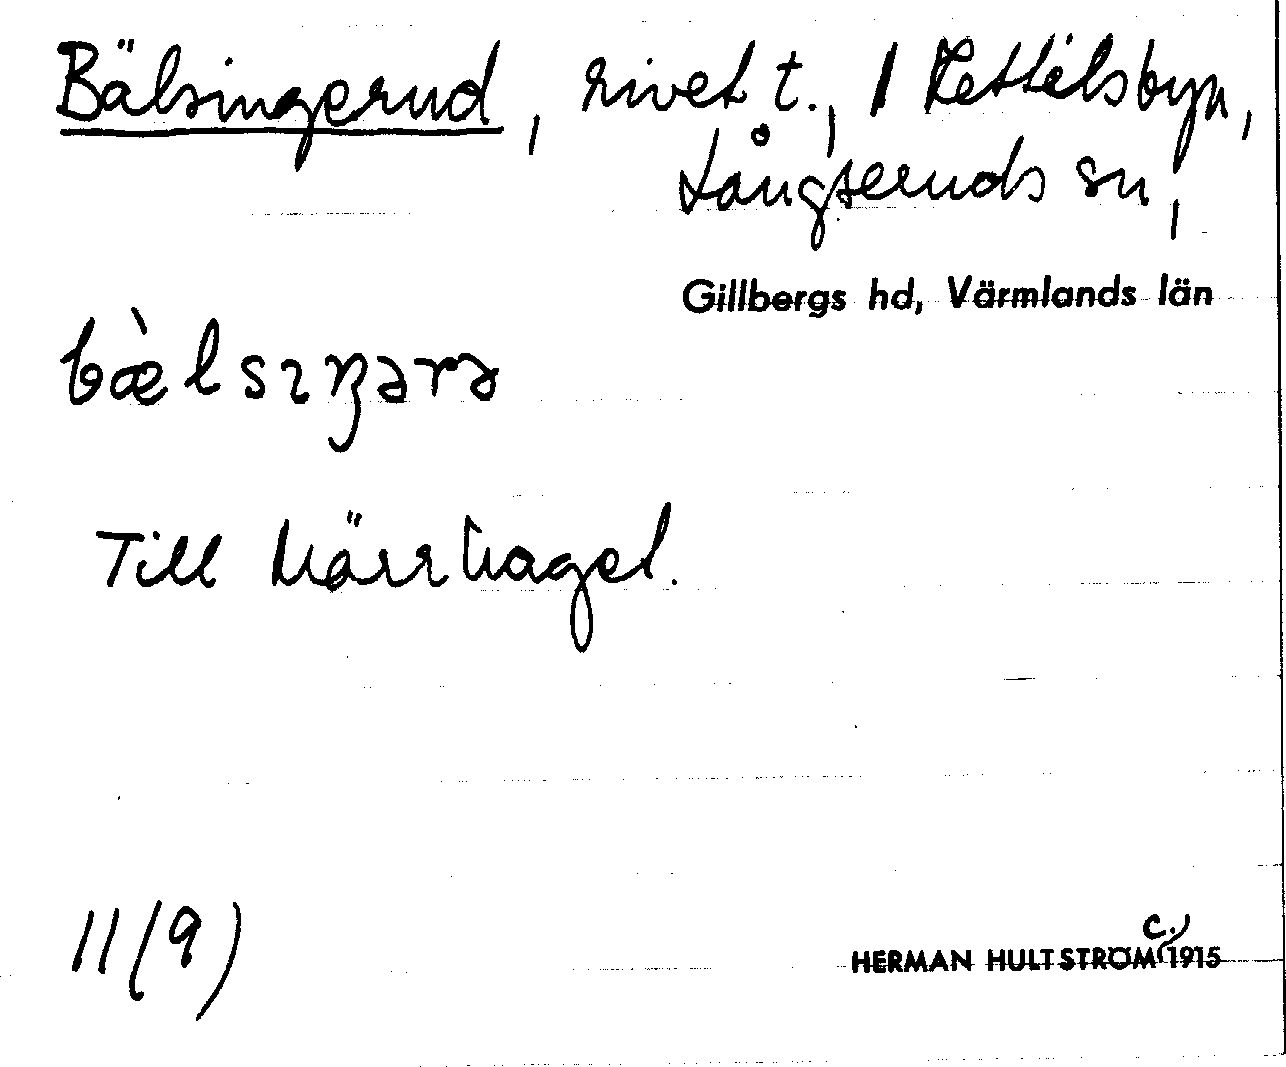 Bälsingerud, rivet t., / Kettilsbyn,
Långseruds sn,
Gillbergs hd, Värmlands län
bæ̀lsɪŋərə
Till Märrhaget.
11(9)
HERMAN HULTSTRÖM c. 1915